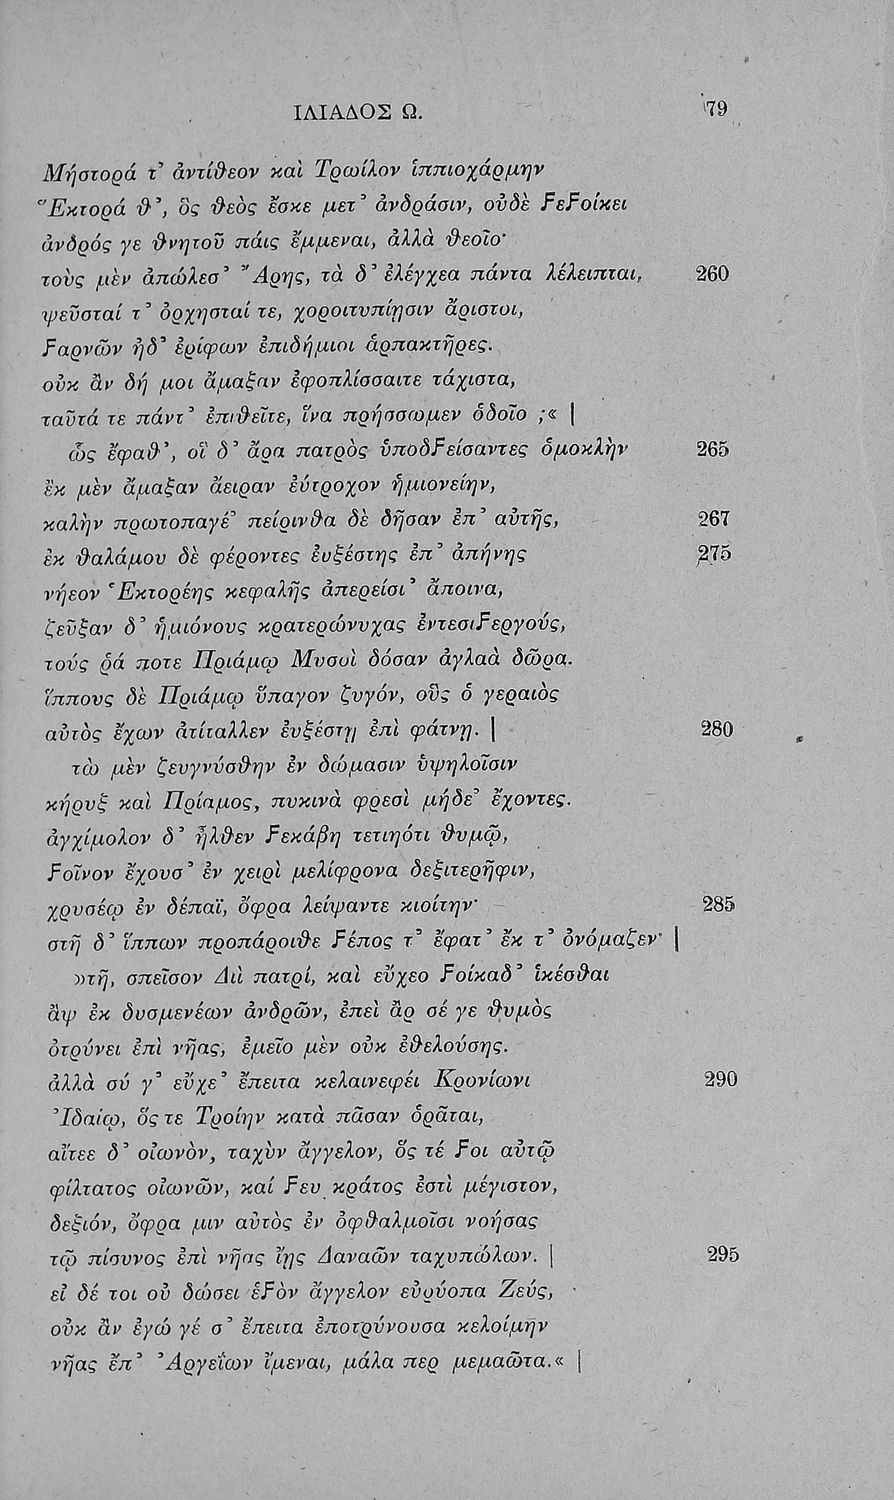 ΙΛΙΑΔΟΣ Ω. 79
Μήστορά τ’ ἀντίθεον καὶ Τρωίλον ἱππιοχάρμην
Ἕκτορά θ’, ὃς θεὸς ἔσκε μετ’ ἀνδράσιν, οὐδὲ ϝεϝοίκει
ἀνδρός γε θνητοῦ πάις ἔμμεναι, ἀλλὰ θεοῖο·
τοὺς μὲν ἀπώλεσ’ Ἄρης, τὰ δ’ ἐλέγχεα πάντα λέλειπται, 260
ψεῦσταί τ’ ὀρχησταί τε, χοροιτυπίῃσιν ἄριστοι,
ϝαρνῶν ἠδ’ ἐρίφων ἐπιδήμιοι ἁρπακτῆρες.
οὐκ ἂν δή μοι ἄμαξαν ἐφοπλίσσαιτε τάχιστα,
ταῦτά τε πάντ’ ἐπιθεῖτε, ἵνα πρήσσωμεν ὁδοῖο ;« |
ὣς ἔφαθ’, οἳ δ’ ἄρα πατρὸς ὑποδϝείσαντες ὁμοκλὴν 265
ἐκ μὲν ἄμαξαν ἄειραν ἐύτροχον ἡμιονείην,
καλὴν πρωτοπαγέ’ πείρινθα δὲ δῆσαν ἐπ’ αὐτῆς, 267
ἐκ θαλάμου δὲ φέροντες ἐυξέστης ἐπ’ ἀπήνης 275
νήεον Ἑκτορέης κεφαλῆς ἀπερείσι’ ἄποινα,
ζεῦξαν δ’ ἡμιόνους κρατερώνυχας ἐντεσιϝεργούς,
τούς ῥά ποτε Πριάμῳ Μυσοὶ δόσαν ἀγλαὰ δῶρα.
ἵππους δὲ Πριάμῳ ὕπαγον ζυγόν, οὓς ὁ γεραιὸς
αὐτὸς ἔχων ἀτίταλλεν ἐυξέστῃ ἐπὶ φάτνῃ. | 280
τὼ μὲν ζευγνύσθην ἐν δώμασιν ὑψηλοῖσιν
κήρυξ καὶ Πρίαμος, πυκινὰ φρεσὶ μήδε’ ἔχοντες.
ἀγχίμολον δ’ ἦλθεν ϝεκάβη τετιηότι θυμῷ,
ϝοῖνον ἔχουσ’ ἐν χειρὶ μελίφρονα δεξιτερῆφιν,
χρυσέῳ ἐν δέπαϊ, ὄφρα λείψαντε κιοίτην· 285
στῆ δ’ ἵππων προπάροιθε ϝέπος τ’ ἔφατ’ ἔκ τ’ ὀνόμαζεν· |
»τῆ, σπεῖσον Διὶ πατρί, καὶ εὔχεο ϝοίκαδ’ ἱκέσθαι
ἂψ ἐκ δυσμενέων ἀνδρῶν, ἐπεὶ ἂρ σέ γε θυμὸς
ὀτρύνει ἐπὶ νῆας, ἐμεῖο μὲν οὐκ ἐθελούσης.
ἀλλὰ σύ γ’ εὔχε’ ἔπειτα κελαινεφέι Κρονίωνι 290
Ἰδαίῳ, ὅς τε Τροίην κατὰ πᾶσαν ὁρᾶται,
αἴτεε δ’ οἰωνὸν, ταχὺν ἄγγελον, ὅς τέ ϝοι αὐτῷ
φίλτατος οἰωνῶν, καί ϝευ κράτος ἐστὶ μέγιστον,
δεξιόν, ὄφρα μιν αὐτὸς ἐν ὀφθαλμοῖσι νοήσας
τῷ πίσυνος ἐπὶ νῆας ἴῃς Δαναῶν ταχυπώλων. | 295
εἰ δέ τοι οὐ δώσει ἑϝὸν ἄγγελον εὐρύοπα Ζεύς,
οὐκ ἂν ἐγώ γέ σ’ ἔπειτα ἐποτρύνουσα κελοίμην
νῆας ἔπ’ Ἀργεΐων ἴμεναι, μάλα περ μεμαῶτα.« |